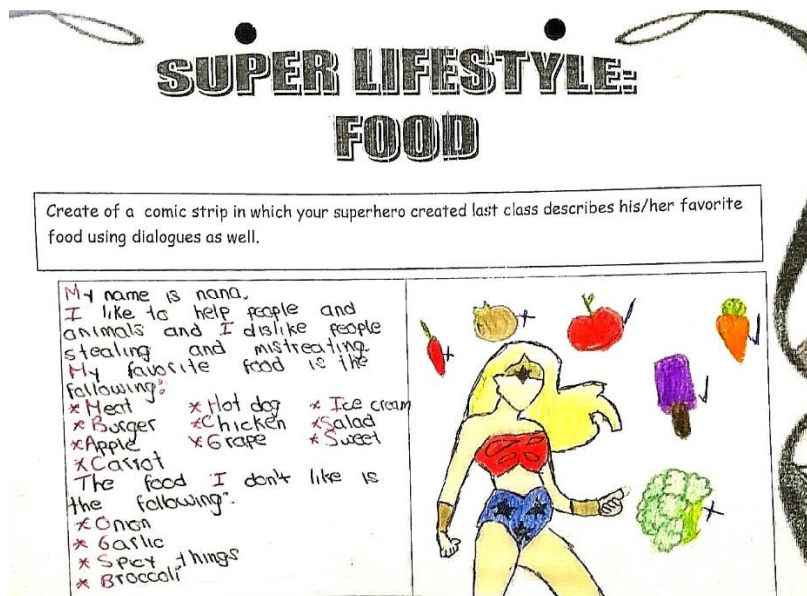 SUPER LIFESTYLE:
FOOD
Create of a comic strip in which your superhero created last class describes his/her favorite
food using dialogues as well.
My name is nana.
I like to help people and
animals and I dislike people
stealing and mistreating.
My favorite food is the
following:
* Meat * Hot dog * Ice cream
* Burger * Chicken * Salad
* Apple * Grape * Sweet
* Carrot
The food I don't like is
the following:
* Onion
* Garlic
* Spicy things
* Broccoli